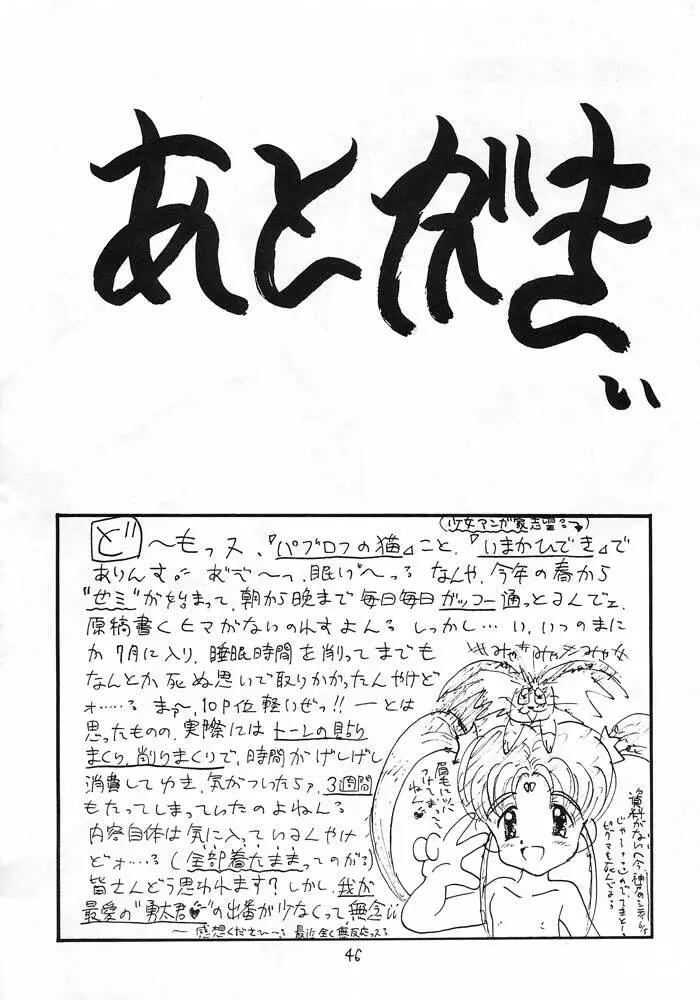 あとがき
(少女マンガ家志望る→)
ど～もっス、『パブロフの猫』こと、『いまかひでき』で
ありんす。 おで～っ、眠い～っる なんや、今年の春から
"ゼミ"が始まって、朝から晩まで毎日毎日ガッコー通っとるんでェ、
原稿書くヒマがないのれすよんる しっかし…い、いつのまに
か7月に入り、睡眠時間を削ってまでも
なんとか死ぬ思いで取りかかったんやけど
ォ……る まぁ～、10P位軽いぜっ!! ーとは
思ったものの、実際にはトーンの貼り
まくり、削りまくりで、時間がげしげし
消費してゆき、気がついたらァ、3週間
もたってしまっていたのよねんる
内容自体は気に入っているんやけ
どォ…る(全部着たままってのがる)
皆さんどう思われます？しかし、我が
最愛の"勇太君♥"の出番が少なくって、無念
～感想くださひ～る 最近全く無反応っスる
みゃみゃみゃみゃ
眉毛に
つけてしまって
ねん
資料がない
46